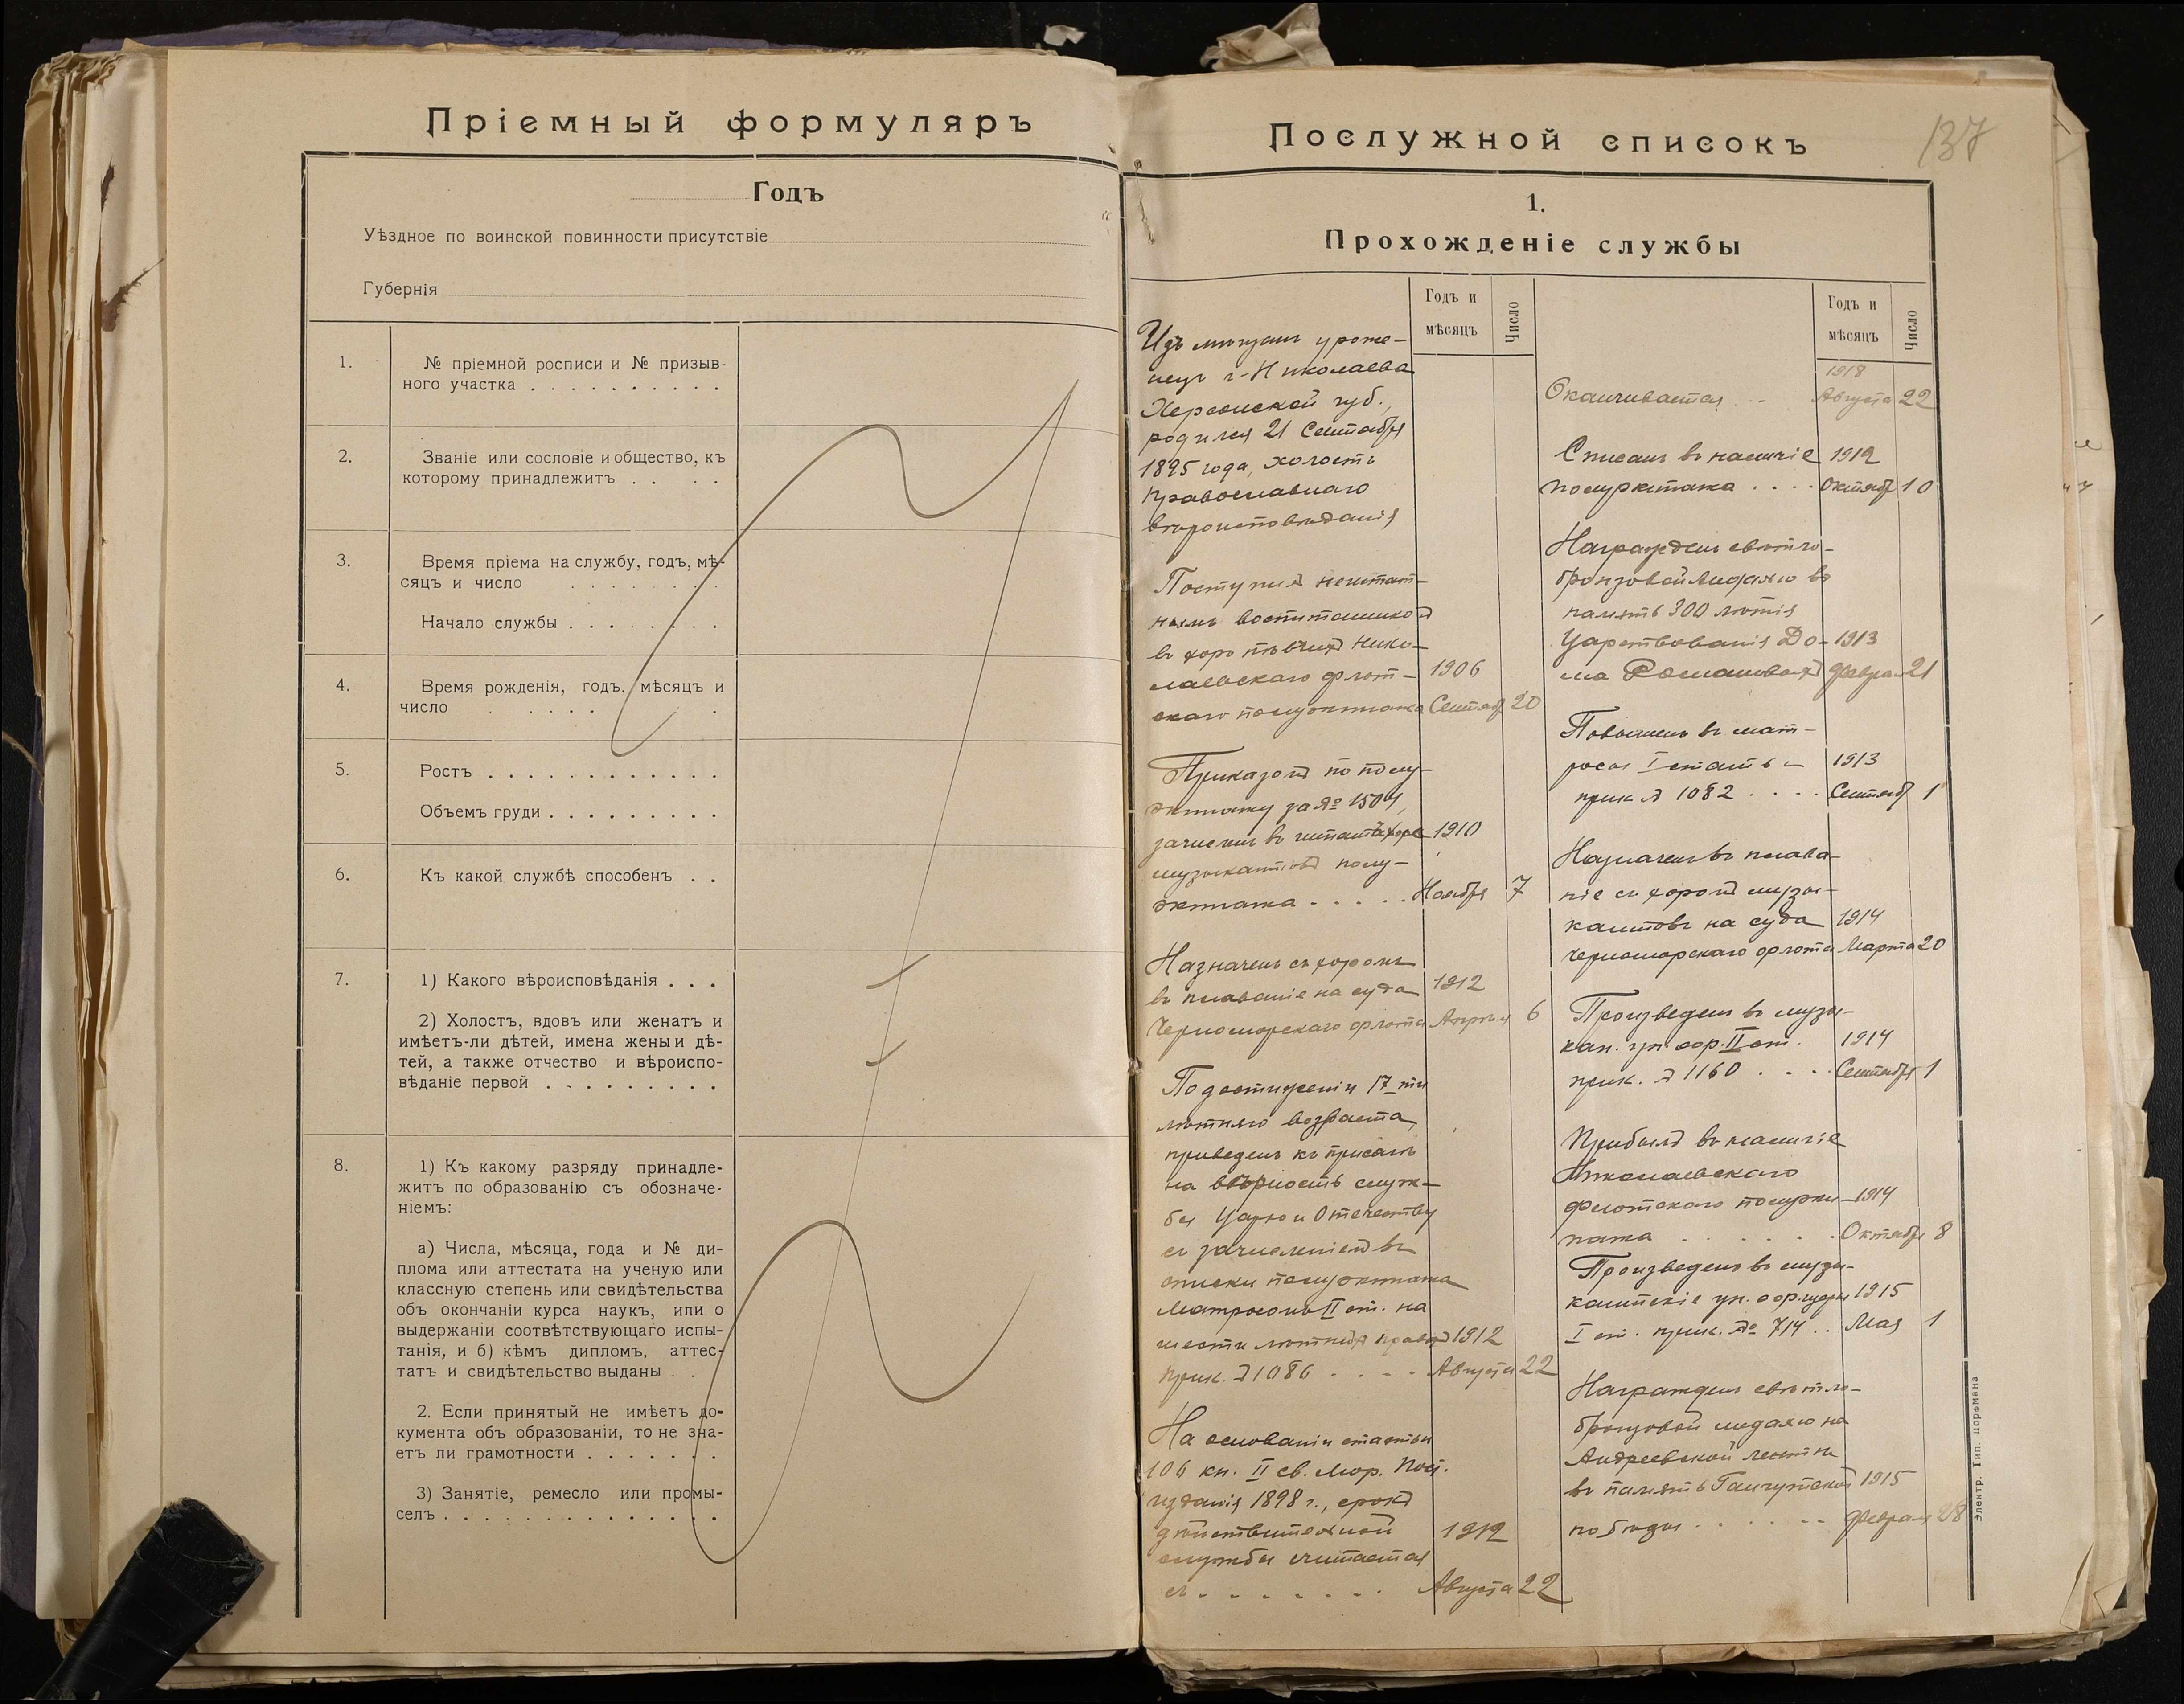 Пріемный формуляръ
Годъ
Уѣздное по воинской повинности присутствіе
Губернія
1.
№ пріемной росписи и № призыв-
ного участка . . . . . . . . . .
2.
Званіе или сословіе и общество, къ
которому принадлежитъ . . . .
3.
Время пріема на службу, годъ, мѣ-
сяцъ и число . . . . . . .
Начало службы . . . . . . . .
4.
Время рожденія, годъ, мѣсяцъ и
число . . . . . .
5.
Ростъ . . . . . . . . . . . .
Объемъ груди . . . . . . . . .
6.
Къ какой службѣ способенъ . .
7.
1) Какого вѣроисповѣданія . . .
2) Холостъ, вдовъ или женатъ и
имѣетъ-ли дѣтей, имена жены и дѣ-
тей, а также отчество и вѣроиспо-
вѣданіе первой . . . . . . . . .
8.
1) Къ какому разряду принадле-
житъ по образованію съ обозначе-
ніемъ:
а) Числа, мѣсяца, года и № ди-
плома или аттестата на ученую или
классную степень или свидѣтельства
объ окончаніи курса наукъ, или о
выдержаніи соотвѣтствующаго испы-
танія, и б) кѣмъ дипломъ, аттес-
татъ и свидѣтельство выданы . .
2. Если принятый не имѣетъ до-
кумента объ образованіи, то не зна-
етъ ли грамотности . . . . . . .
3) Занятіе, ремесло или промы-
селъ . . . . . . . . . . . . . .
Послужной списокъ
137
1.
Прохожденіе службы
Годъ и
мѣсяцъ
Число
Изъ мѣщанъ уроже-
нецъ г. Николаева
Херсонской губ.,
родился 21 Сентября
1895 года, холостъ
православнаго
вѣроисповѣданія
Поступилъ нештат-
нымъ воспитанникомъ
въ хоръ пѣвчихъ Нико-
лаевскаго флот- 1906
скаго полуэкипажа Сентяб 20
Приказомъ по полу-
экипажу за № 1504,
зачисленъ въ штатъ хора 1910
музыкантовъ полу-
экипажа . . . . . Ноября 7
Назначенъ съ хоромъ
въ плаваніе на суда 1912
Черноморскаго флота Апрѣля 6
По достиженіи 17-ти
лѣтняго возраста,
приведенъ къ присягѣ
на вѣрность служ-
бы Царю и Отечеству
съ зачисленіемъ въ
списки полуэкипажа
Матросомъ II ст. на
шести лѣтнихъ правахъ 1912
прик. № 1086 . . . . Августа 22
На основаніи статьи
106 кн. II св. Мор. Пост.
изданія 1898 г., срокъ
дѣйствительной 1912
службы считается
съ . . . . . . . Августа 22
Годъ и
мѣсяцъ
Число
1918
Оканчивается . . Августа 22
Списанъ въ наличіе 1912
полуэкипажа . . . . Октяб 10
Награжденъ свѣтло-
бронзовой медалью въ
память 300 лѣтія
Царствованія До- 1913
ма Романовыхъ Феврал 21
Повышенъ въ мат-
росы I статьи 1913
прик № 1082 . . . . Сентяб 1
Назначенъ въ плава-
ніе съ хоромъ музы-
кантовъ на суда 1914
Черноморскаго флота Марта 20
Произведенъ въ музы-
кан. ун. оф. II ст. 1914
прик. № 1160 . . . . Сентября 1
Прибылъ въ наличіе
Николаевскаго
флотскаго полуэки- 1914
пажа . . . . . . . Октября 8
Произведенъ въ музы-
кантскіе ун. офицеры 1915
I ст. прик. № 714 . . Мая 1
Награжденъ свѣтло-
бронзовой медалью на
Андреевской лентѣ
въ память Гангутской 1915
побѣды . . . . . . Феврал 28